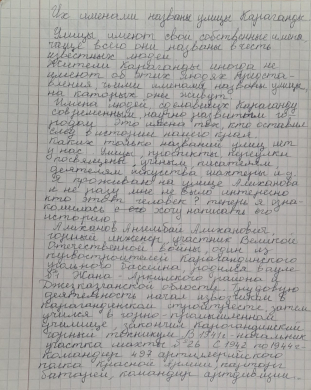 Их именами названы улицы Караганды
Улицы имеют свои собственные имена
чаще всего они названы в честь
известных людей
Жители Караганды иногда не
имеют об этих людях представ-
ления чьими именами названы улицы
на которых они живут.
Имена людей сделавших Караганду
современным научно развитым го-
родом. Это имена тех, кто оставил
след в истории нашего края.
Каких только названий улиц нет
у нас. Улицы проспекты переулки
посвящены учёным, писателям
деятелям искусства шахтеры и
Я проживаю на улице Алиханова
и ни разу мне не было интересно
кто этот человек? теперь я озна-
комилась и хочу написать его
историю.
Алиханов Алиханович,
горный инженер, участник Великой
Отечественной войны, один из
первостроителей Карагандинского
угольного бассейна, родился в ауле
№1 Жана-Аркинского района
Джезказганской области. Трудовую
деятельность начал извозчиком в
Карагандинском затем
учился в горно-промышленном
училище, закончил Карагандинский
горный техникум. В 1941г-начальник
участка шахты С 1942 по 1944г-
Командир 497 артиллерийского
полка Красной Армии, парторг
батареи, командир